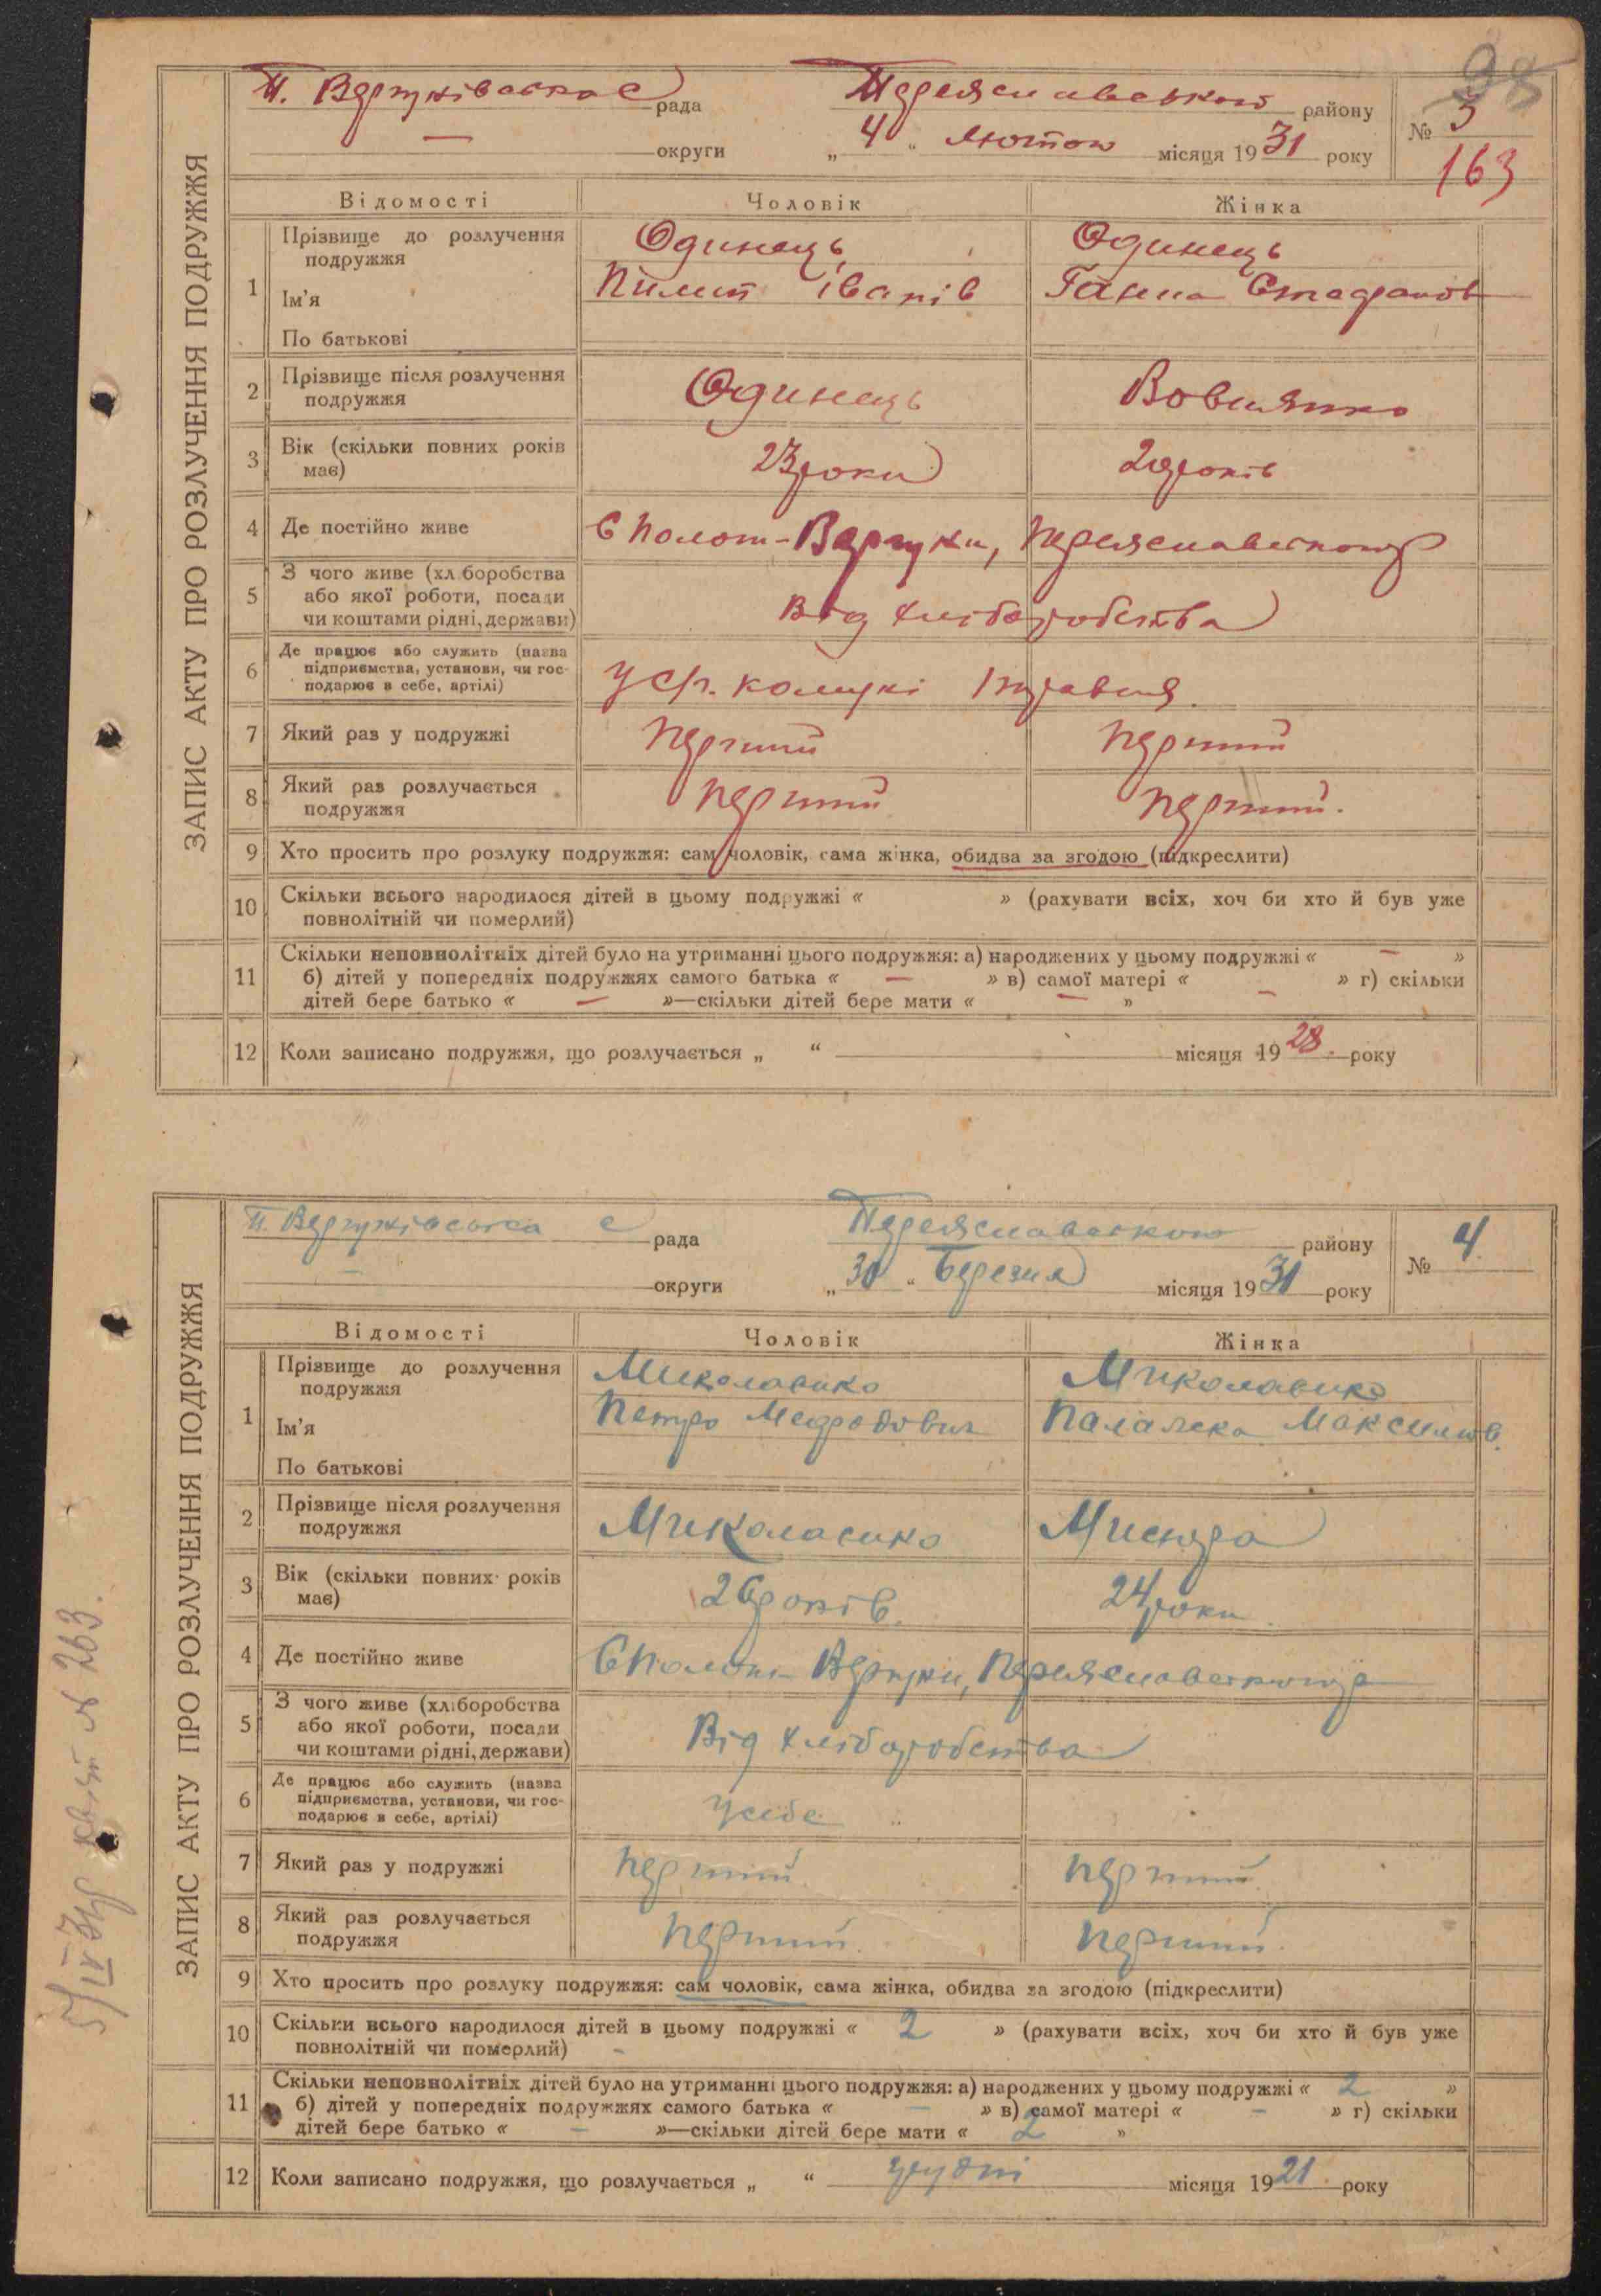 98
П. Вергунівська с рада Переяславського району № 3
— округи „ 4 “ Лютого місяця 1931 року
163
ЗАПИС АКТУ ПРО РОЗЛУЧЕННЯ ПОДРУЖЖЯ
Відомості Чоловік Жінка
1 Прізвище до розлучення подружжя Одинець Одинець
Ім'я Пилип Іванів Ганна Стефанов
По батькові
2 Прізвище після розлучення подружжя Одинець
3 Вік (скільки повних років має) 23 роки 20 років
4 Де постійно живе С Полот-Вергуни, Переяславського р
5 З чого живе (хліборобства або якої роботи, посади чи коштами рідні, держави) Від хліборобства
6 Де працює або служить (назва підприємства, установи, чи господарює в себе, артілі) У с/г. комуні 1 травня
7 Який раз у подружжі перший перший
8 Який раз розлучається подружжя перший перший.
9 Хто просить про розлуку подружжя: сам чоловік, сама жінка, обидва за згодою (підкреслити)
10 Скільки всього народилося дітей в цьому подружжі « » (рахувати всіх, хоч би хто й був уже
повнолітній чи померлий)
11 Скільки неповнолітніх дітей було на утриманні цього подружжя: а) народжених у цьому подружжі « — »
б) дітей у попередніх подружжях самого батька « — » в) самої матері « — » г) скільки
дітей бере батько « — »—скільки дітей бере мати « — »
12 Коли записано подружжя, що розлучається „ “ місяця 1928. року
П. Вергунівська с рада Переяславського району № 4
— округи „ 30 “ Березня місяця 1931 року
ЗАПИС АКТУ ПРО РОЗЛУЧЕННЯ ПОДРУЖЖЯ
Відомості Чоловік Жінка
1 Прізвище до розлучення подружжя Миколаєнко Миколаєнко
Ім'я Петро Мефодович Палажка Максимов.
По батькові
2 Прізвище після розлучення подружжя Миколаєнко Мисюра
3 Вік (скільки повних років має) 26 років. 24 роки
4 Де постійно живе С Полот-Вергуни, Переяславського р
5 З чого живе (хліборобства або якої роботи, посади чи коштами рідні, держави) Від хліборобства
6 Де працює або служить (назва підприємства, установи, чи господарює в себе, артілі) У себе
7 Який раз у подружжі перший перший
8 Який раз розлучається подружжя перший. перший.
9 Хто просить про розлуку подружжя: сам чоловік, сама жінка, обидва за згодою (підкреслити)
10 Скільки всього народилося дітей в цьому подружжі « 2 » (рахувати всіх, хоч би хто й був уже
повнолітній чи померлий) -
11 Скільки неповнолітніх дітей було на утриманні цього подружжя: а) народжених у цьому подружжі « 2 »
б) дітей у попередніх подружжях самого батька « — » в) самої матері « — » г) скільки
дітей бере батько « — »—скільки дітей бере мати « 2 »
12 Коли записано подружжя, що розлучається „ “ грудні місяця 1921 року
5/IV 31р квит № 263.